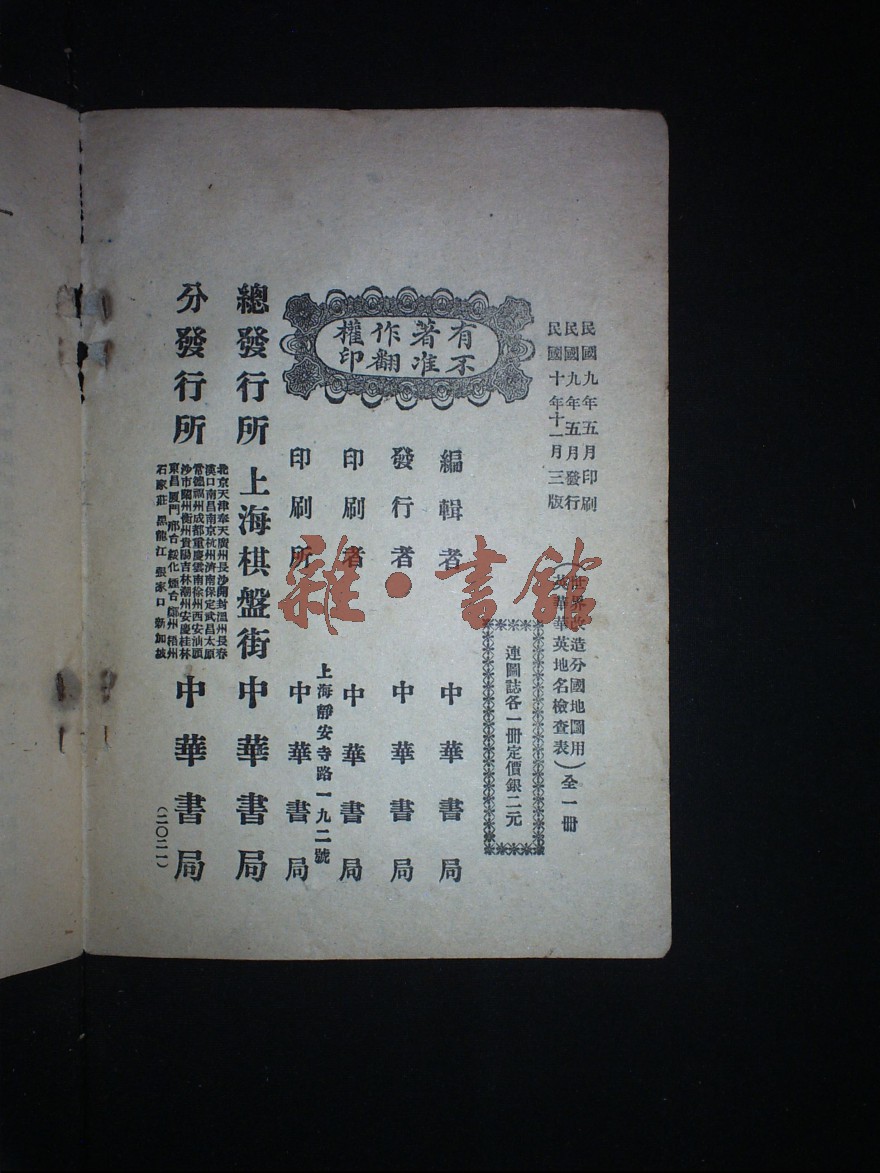 民國九年五月印刷
民國九年五月發行
民國十年十一月三版
世界改造分國地圖用
(英華華英地名檢查表)全一冊
連圖誌各一冊定價銀二元
有著作權
不准翻印
編輯者 中華書局
發行者 中華書局
印刷者 中華書局
上海靜安寺路一九二號
印刷所 中華書局
總發行所 上海棋盤街 中華書局
分發行所
北京天津奉天廣州長沙開封溫州長春
漢口南昌南京杭州濟南保定武昌太原
常德福州成都重慶雲南徐州西安汕頭
沙市蘭州衡州貴陽吉林潮州安慶桂林
東昌廈門邢台綏化煙台鄭州梧州
石家莊 黑龍江 張家口 新加坡
中華書局
(二〇二一)
雜·書館